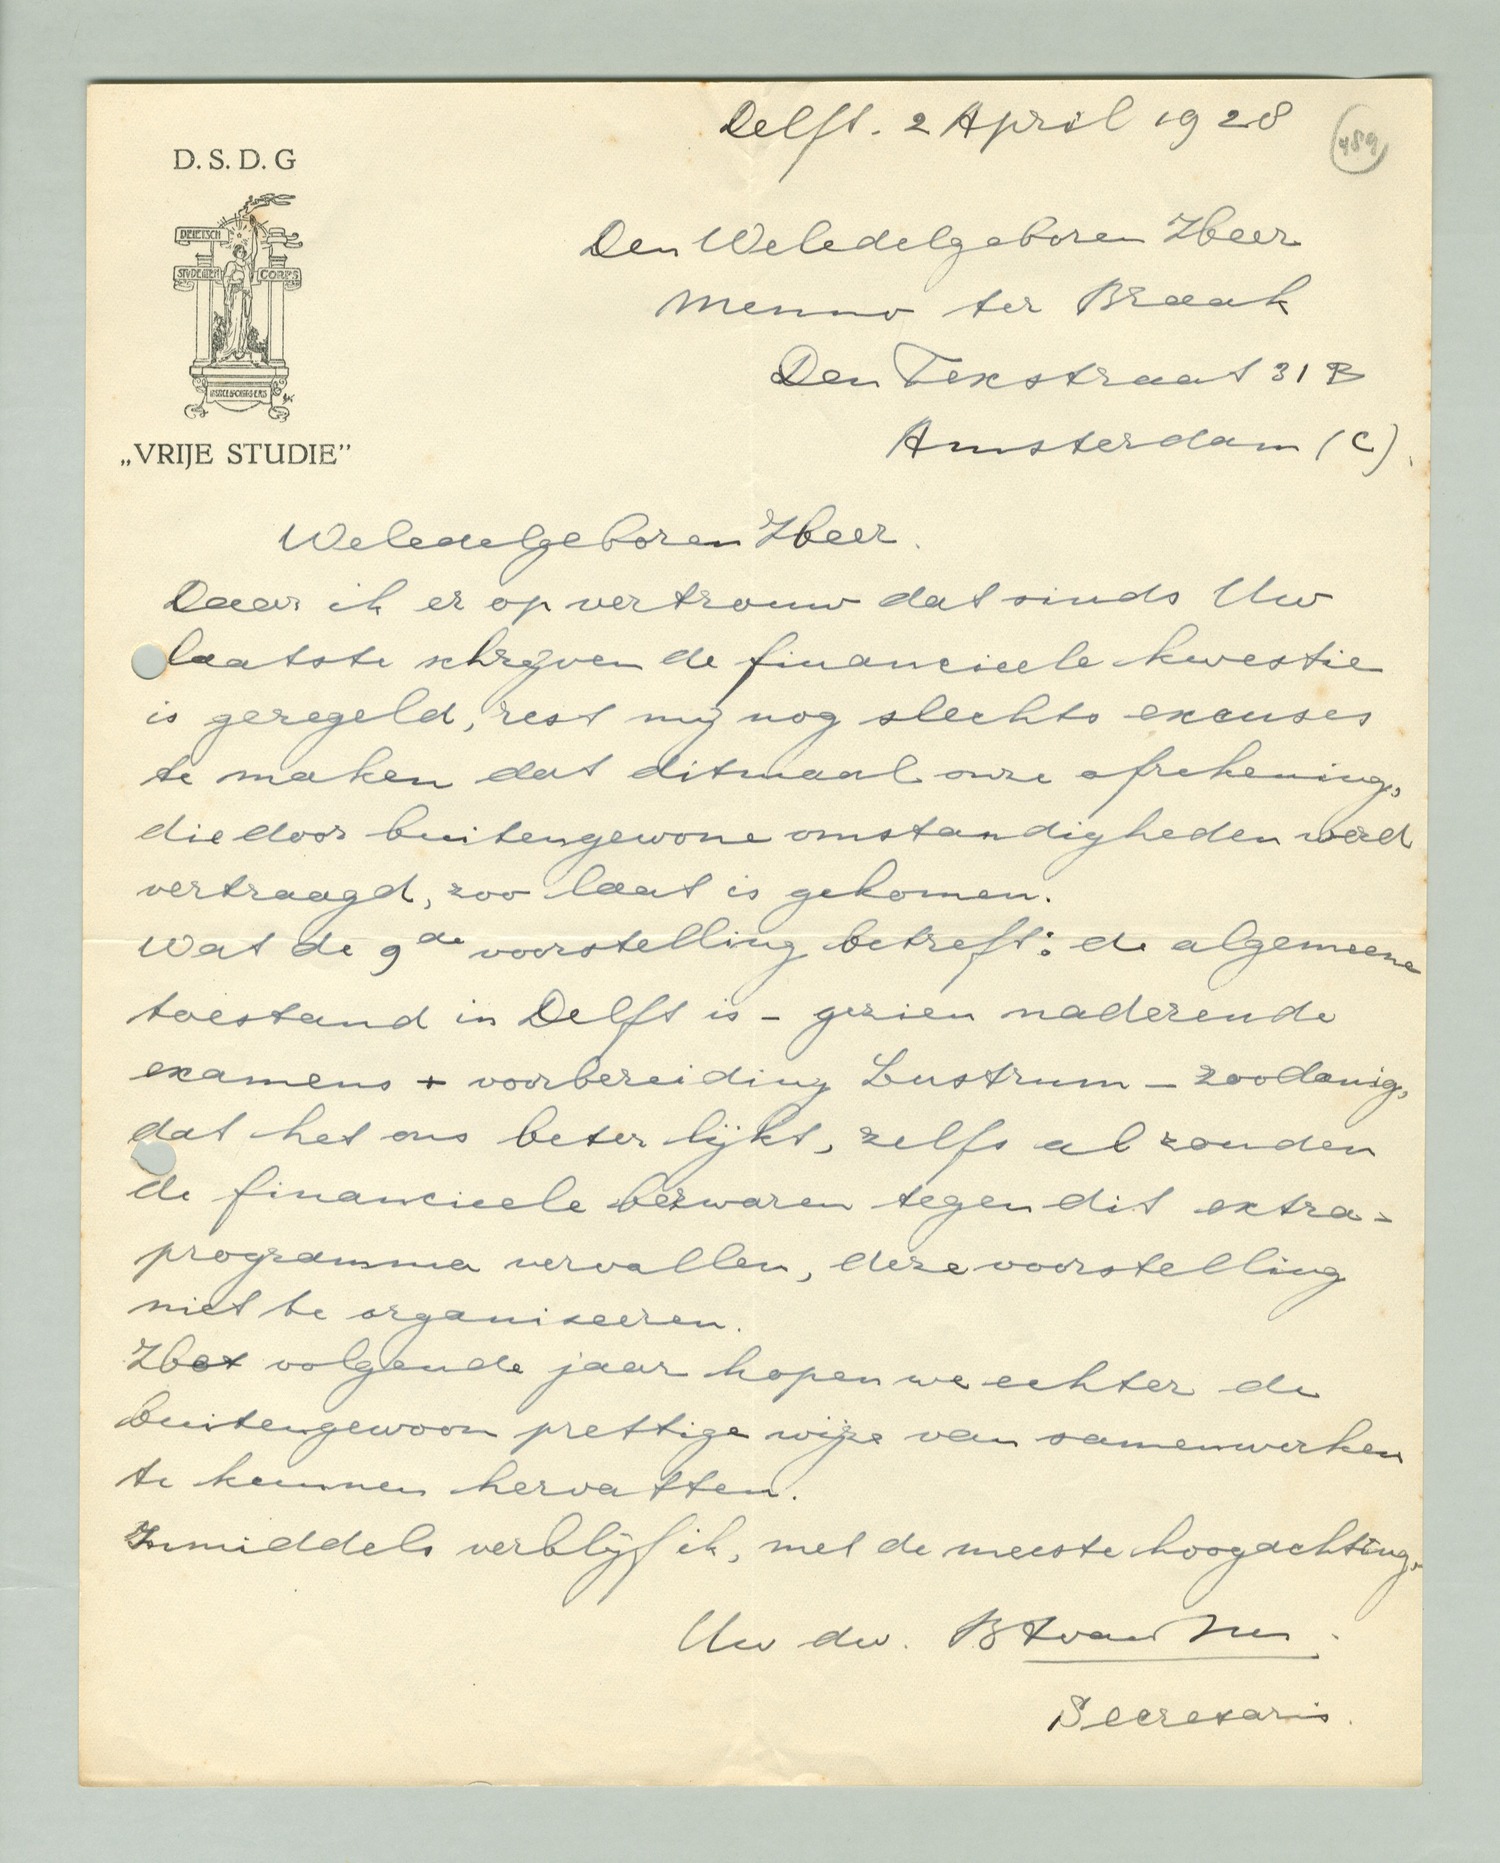 Delft. 2 April 1928
459
D. S. D. G
DELFTSCH
STUDENTEN CORPS
„VRIJE STUDIE”
Den Weledelgeboren Heer
Menno ter Braak
Den Texstraat 31 B
Amsterdam (C).
Weledelgeboren Heer.
Daar ik er op vertrouw dat sinds Uw
laatste schrijven de financieele kwestie
is geregeld, rest mij nog slechts excuses
te maken dat ditmaal onze afrekening,
die door buitengewone omstandigheden werd
vertraagd, zoo laat is gekomen.
Wat de 9de voorstelling betreft: de algemeene
toestand in Delft is – gezien naderende
examens + voorbereiding Lustrum – zoodanig,
dat het ons beter lijkt, zelfs al zouden
de financieele bezwaren tegen dit extra-
programma vervallen, deze voorstelling
niet te organiseeren.
Het volgende jaar hopen we echter de
buitengewoon prettige wijze van samenwerken
te kunnen hervatten.
Inmiddels verblijf ik, met de meeste hoogachting,
Uw dw.
Secretaris.